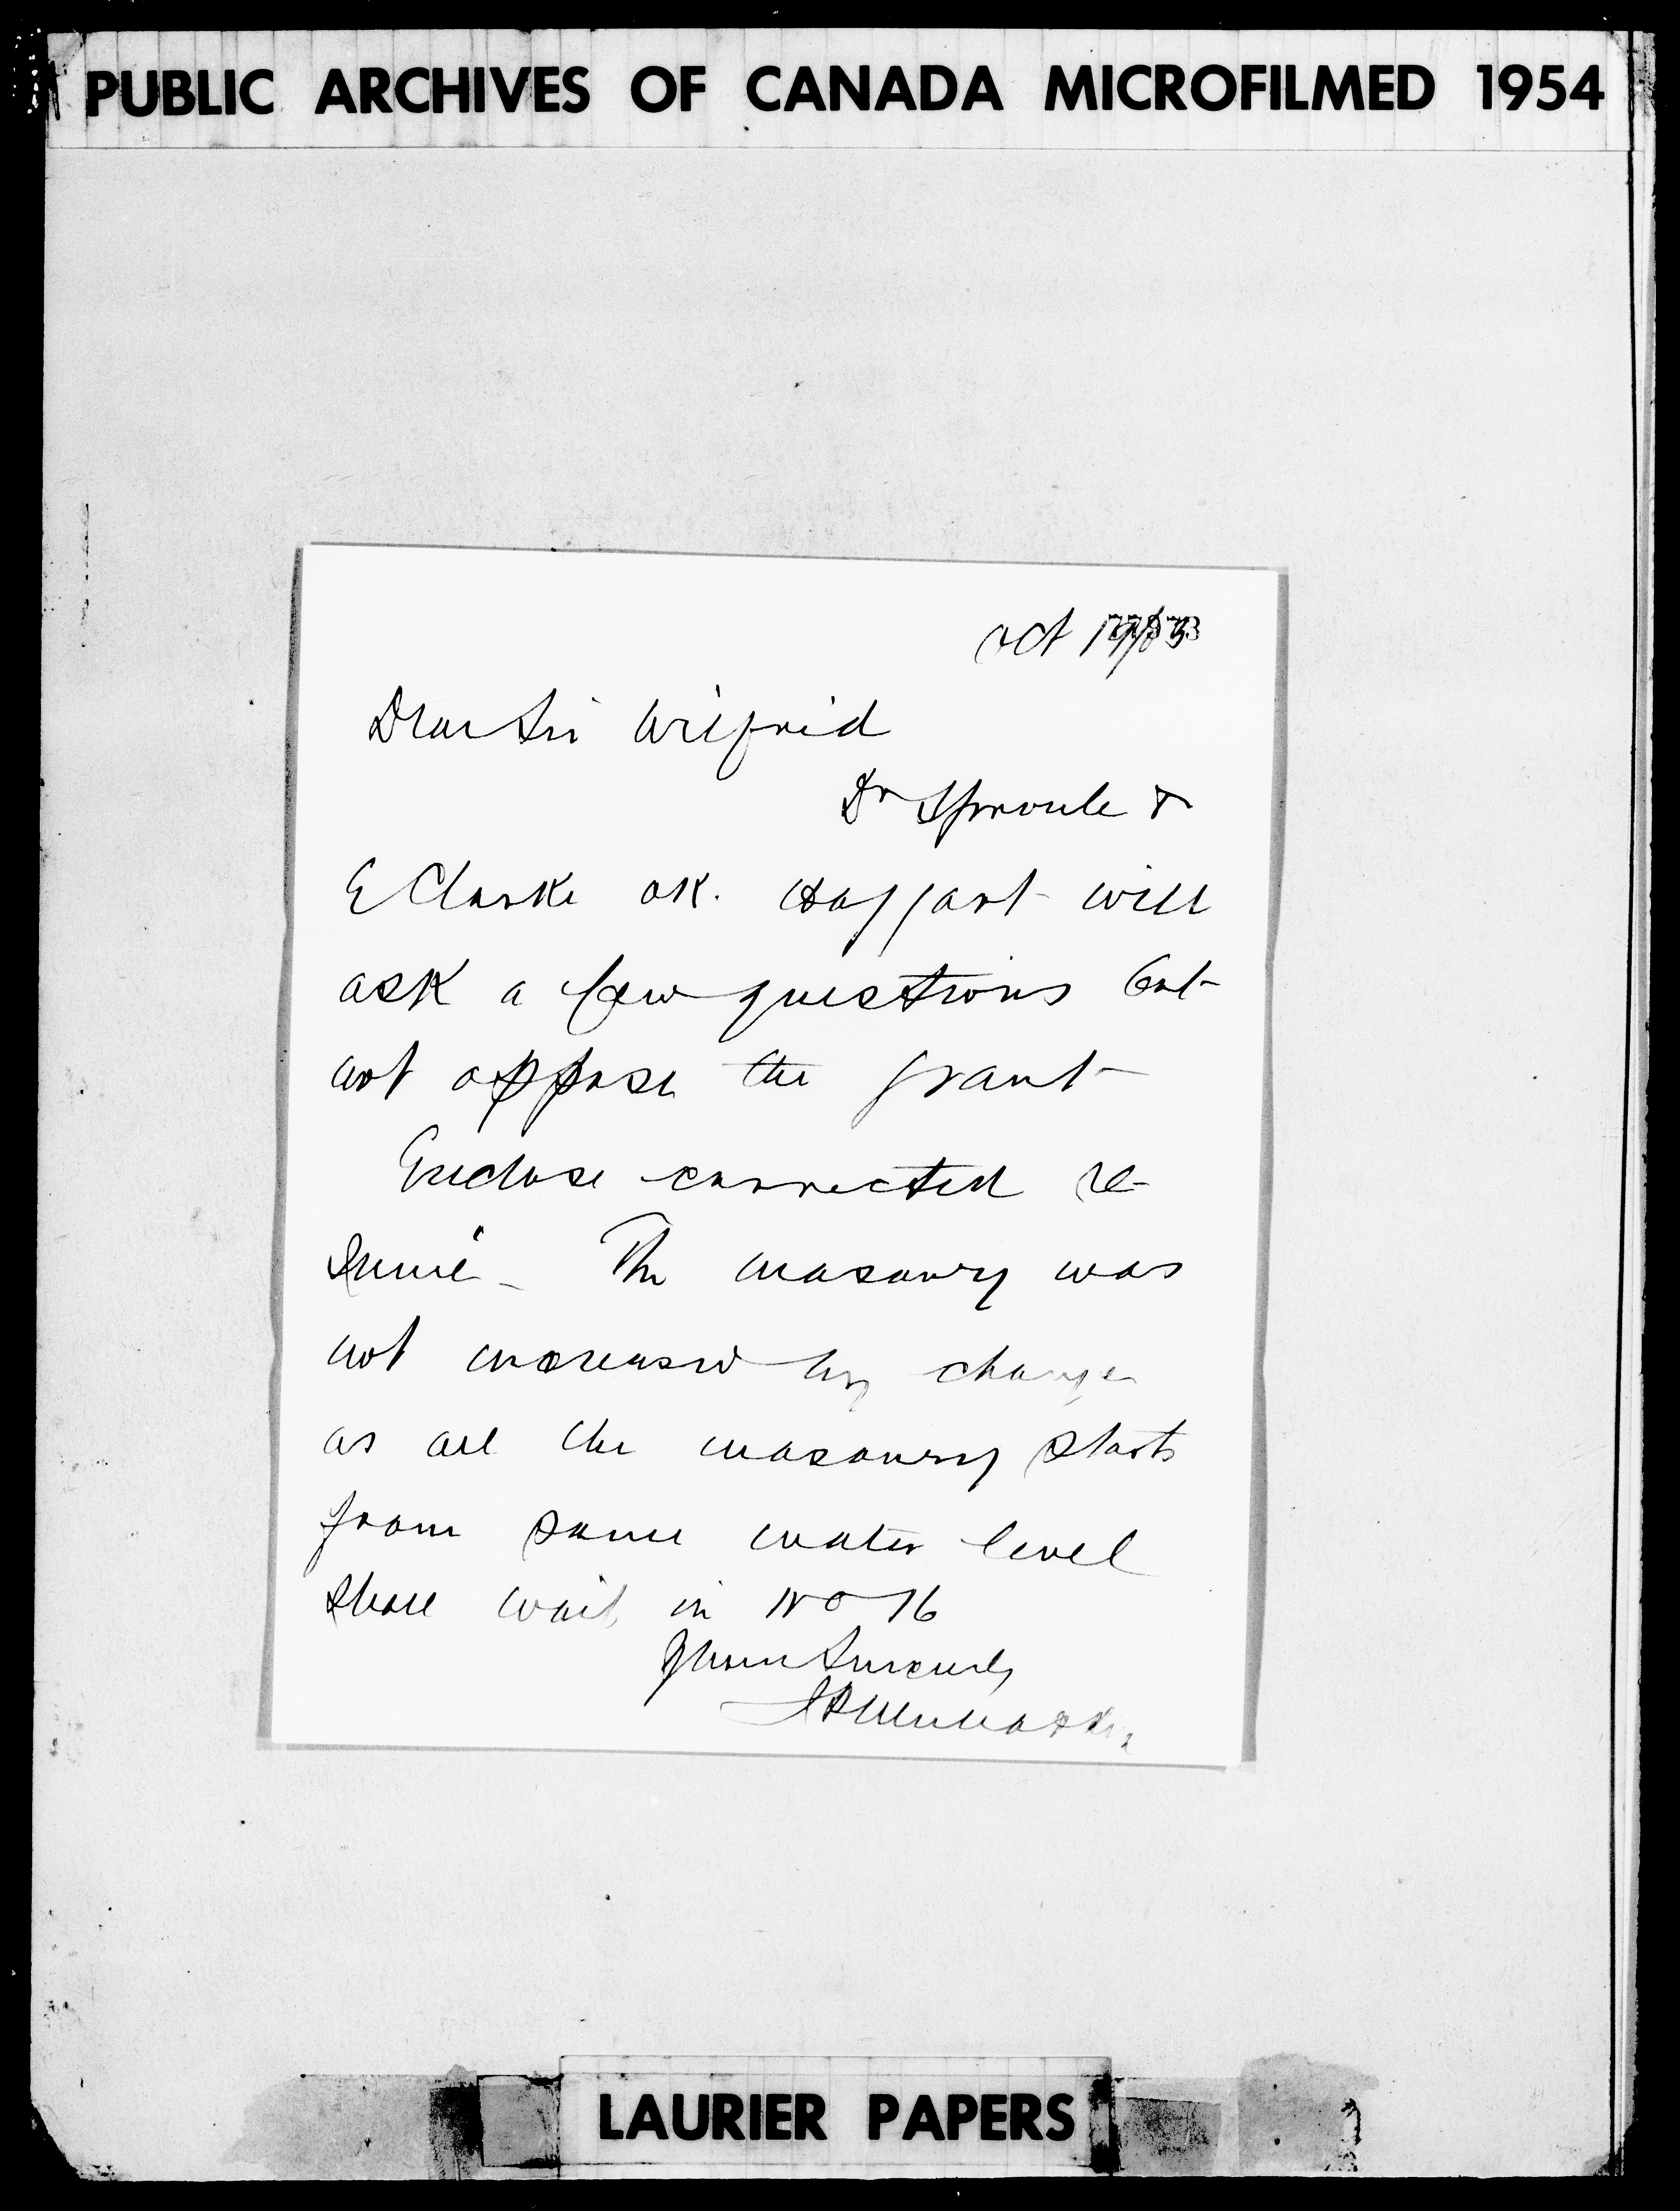 PUBLIC ARCHIVES OF CANADA MICROFILMED 1954
Oct
Dear Sir Wilfrid
Dr Sproule &
E Clarke OK. Haggart will
ask a few questions but
not oppose the grant
Enclose corrected re-
sumé - The masonry was
not increased by change
as all the masonry starts
from same water level
Shall wait in No 16
Yours Sincerely
LAURIER PAPERS